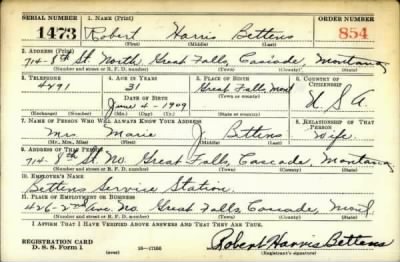 SERIAL NUMBER 1. NAME (Print) ORDER NUMBER
1473 Robert Harris Bettens 854
(First) (Middle) (Last)
2. ADDRESS (Print)
714-8th St. North Great Falls, Cascade, Montana
(Number and street or R. F. D. number) (Town) (County) (State)
3. TELEPHONE 4. AGE IN YEARS 5. PLACE OF BIRTH 6. COUNTRY OF CITIZENSHIP
4291 31 Great Falls, Mont U S A.
DATE OF BIRTH (Town or county)
June 4 - 1909
(Mo.) (Day) (Yr.) (State or country)
7. NAME OF PERSON WHO WILL ALWAYS KNOW YOUR ADDRESS 8. RELATIONSHIP OF THAT PERSON
Mrs Marie J. Bettens Wife.
(Mr., Mrs., Miss) (First) (Middle) (Last)
9. ADDRESS OF THAT PERSON
714-8th St. No. Great Falls, Cascade, Montana
(Number and street or R. F. D. number) (Town) (County) (State)
10. EMPLOYER'S NAME
Bettens Service Station.
11. PLACE OF EMPLOYMENT OR BUSINESS
426-2nd Ave. No. Great Falls, Cascade, Mont.
(Number and street or R. F. D. number) (Town) (County) (State)
I AFFIRM THAT I HAVE VERIFIED ABOVE ANSWERS AND THAT THEY ARE TRUE.
REGISTRATION CARD
D. S. S. Form 1 (over) 16-17105 Robert Harris Bettens
(Registrant's signature)